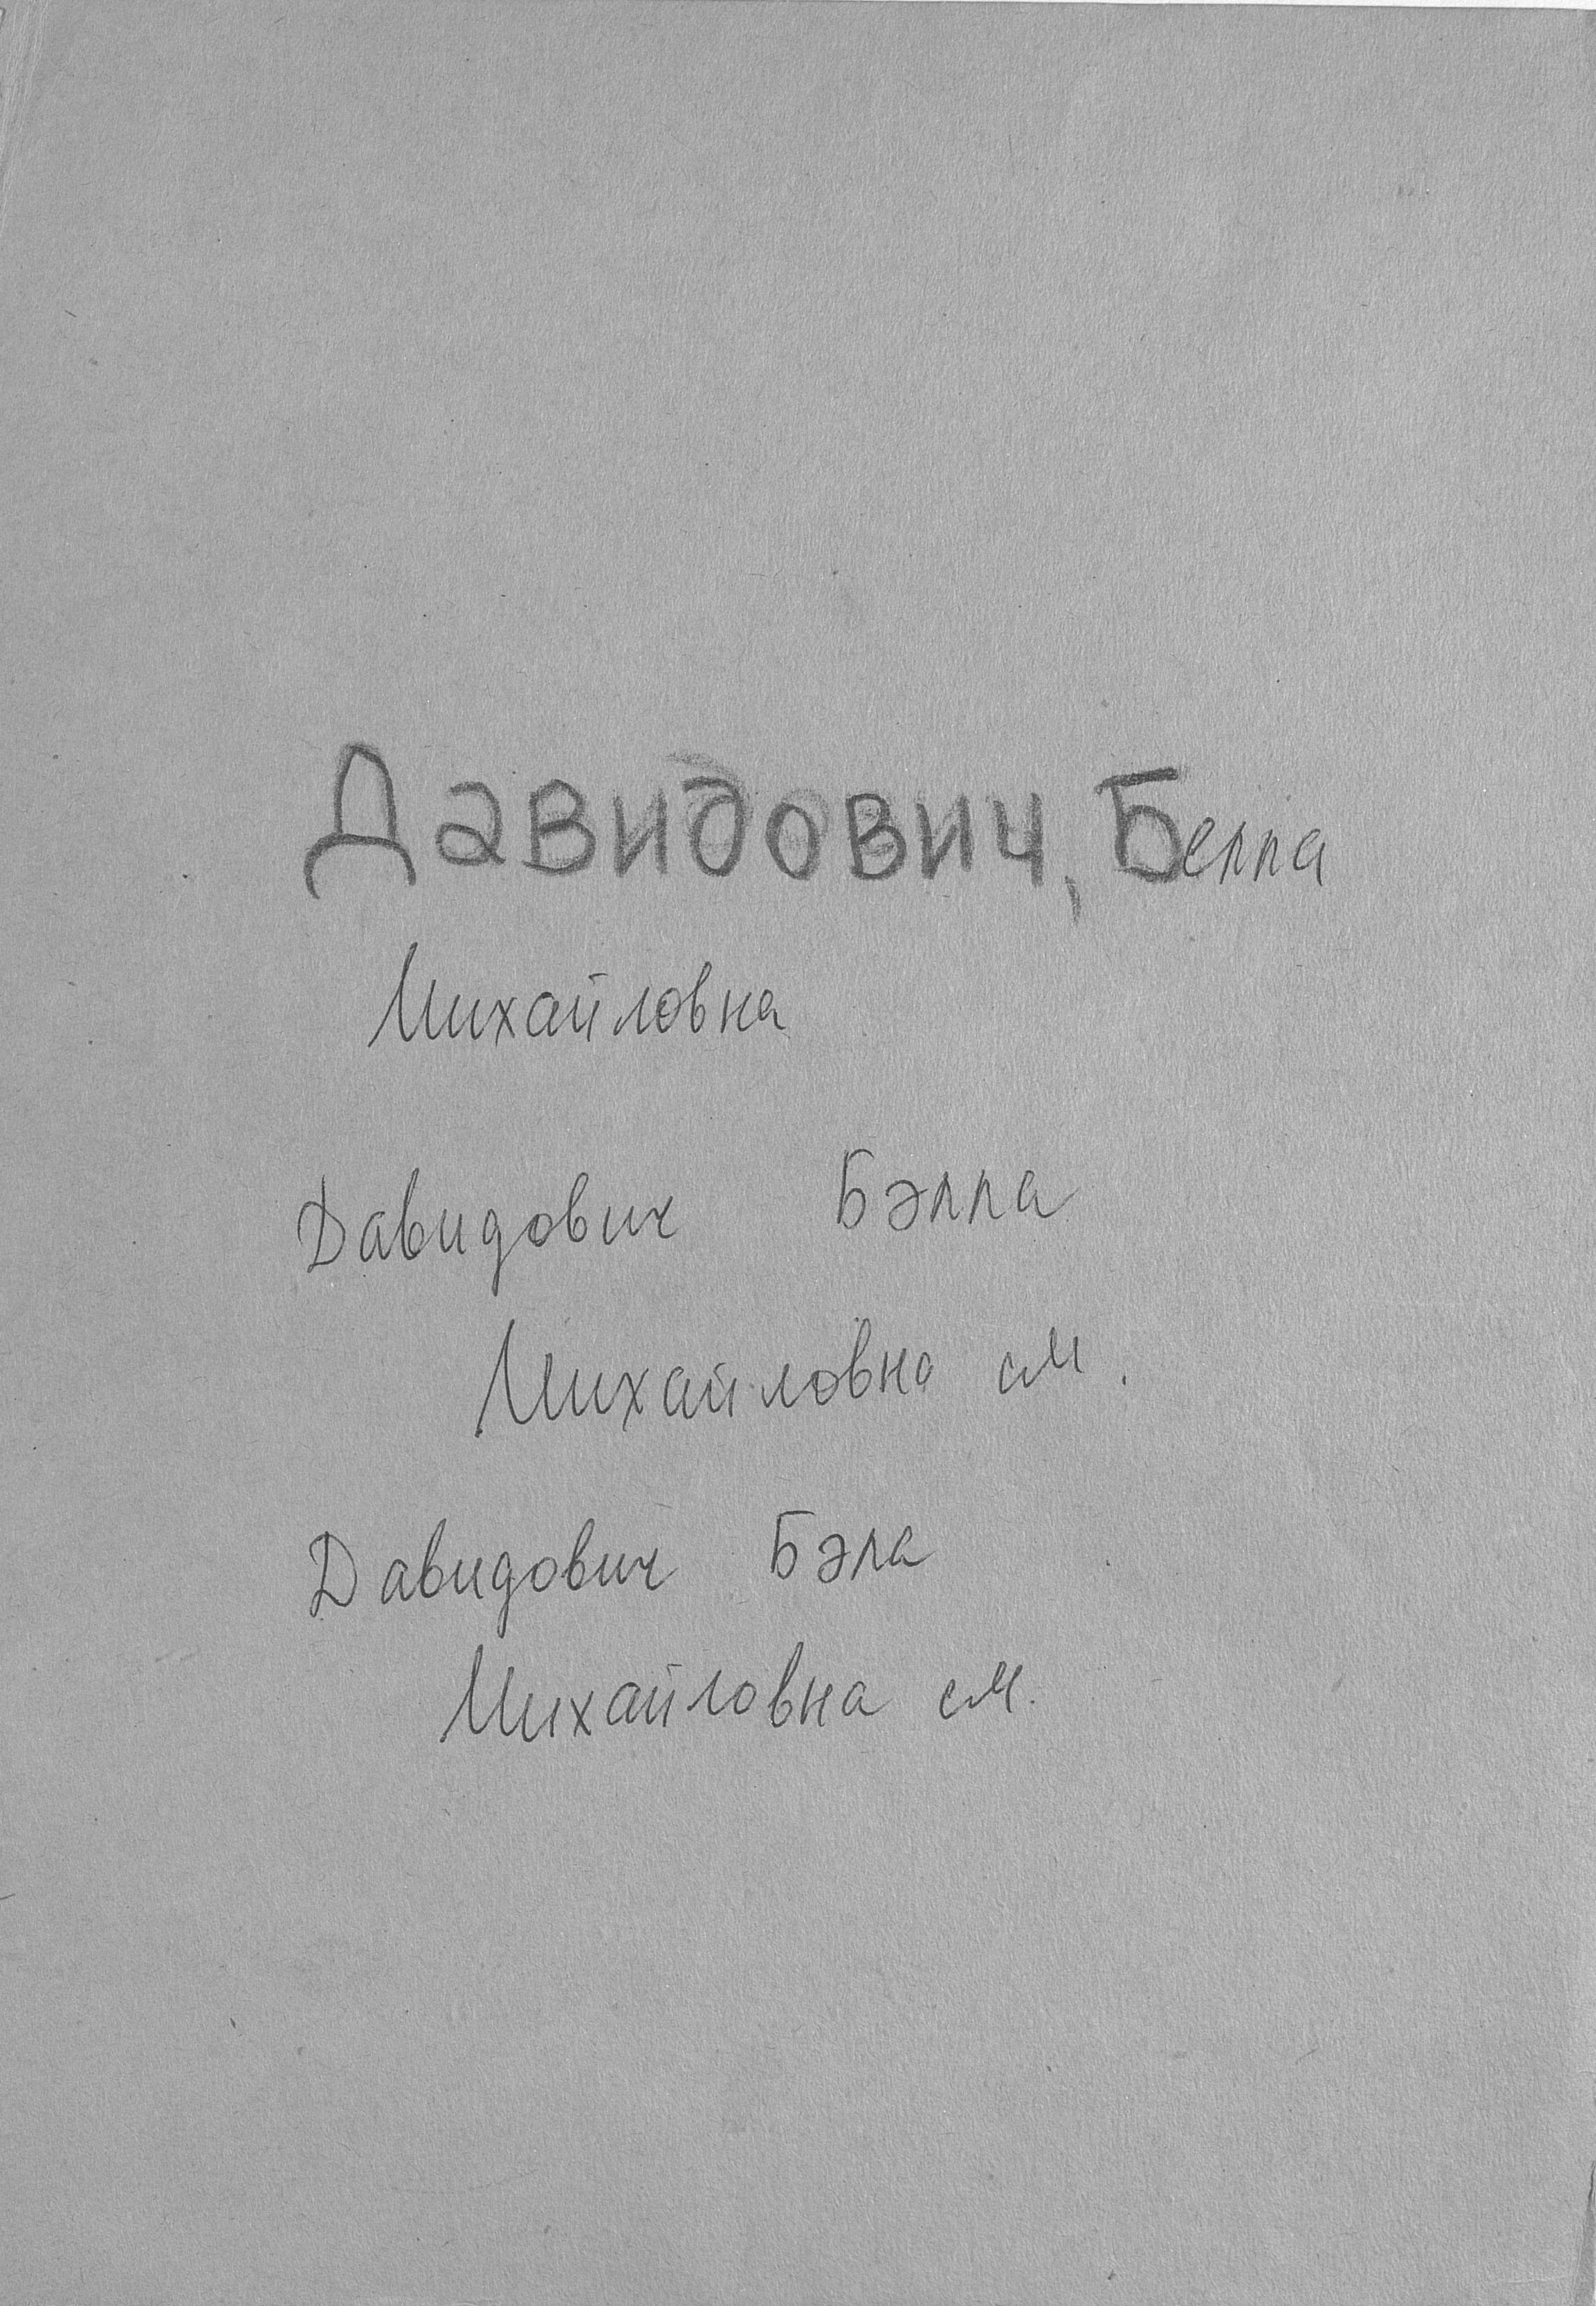 Давидович, Белла
Михайловна
Давидович Бэлла
Михайловна см.
Давидович Бэла
Михайловна см.